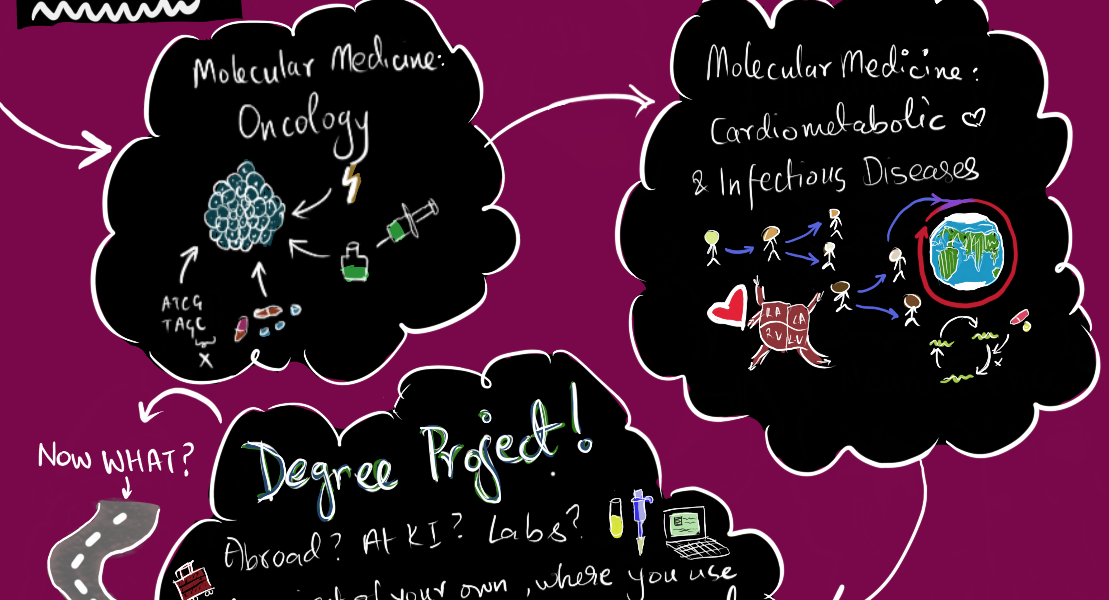 Molecular Medicine:
Oncology
ATCG
TAGC
X
Molecular Medicine:
Cardiometabolic ♡
& Infectious Diseases
RA LA
RV LV
x
NOW WHAT?
Degree Project!
Abroad? At KI? Labs?
of your own, where you use